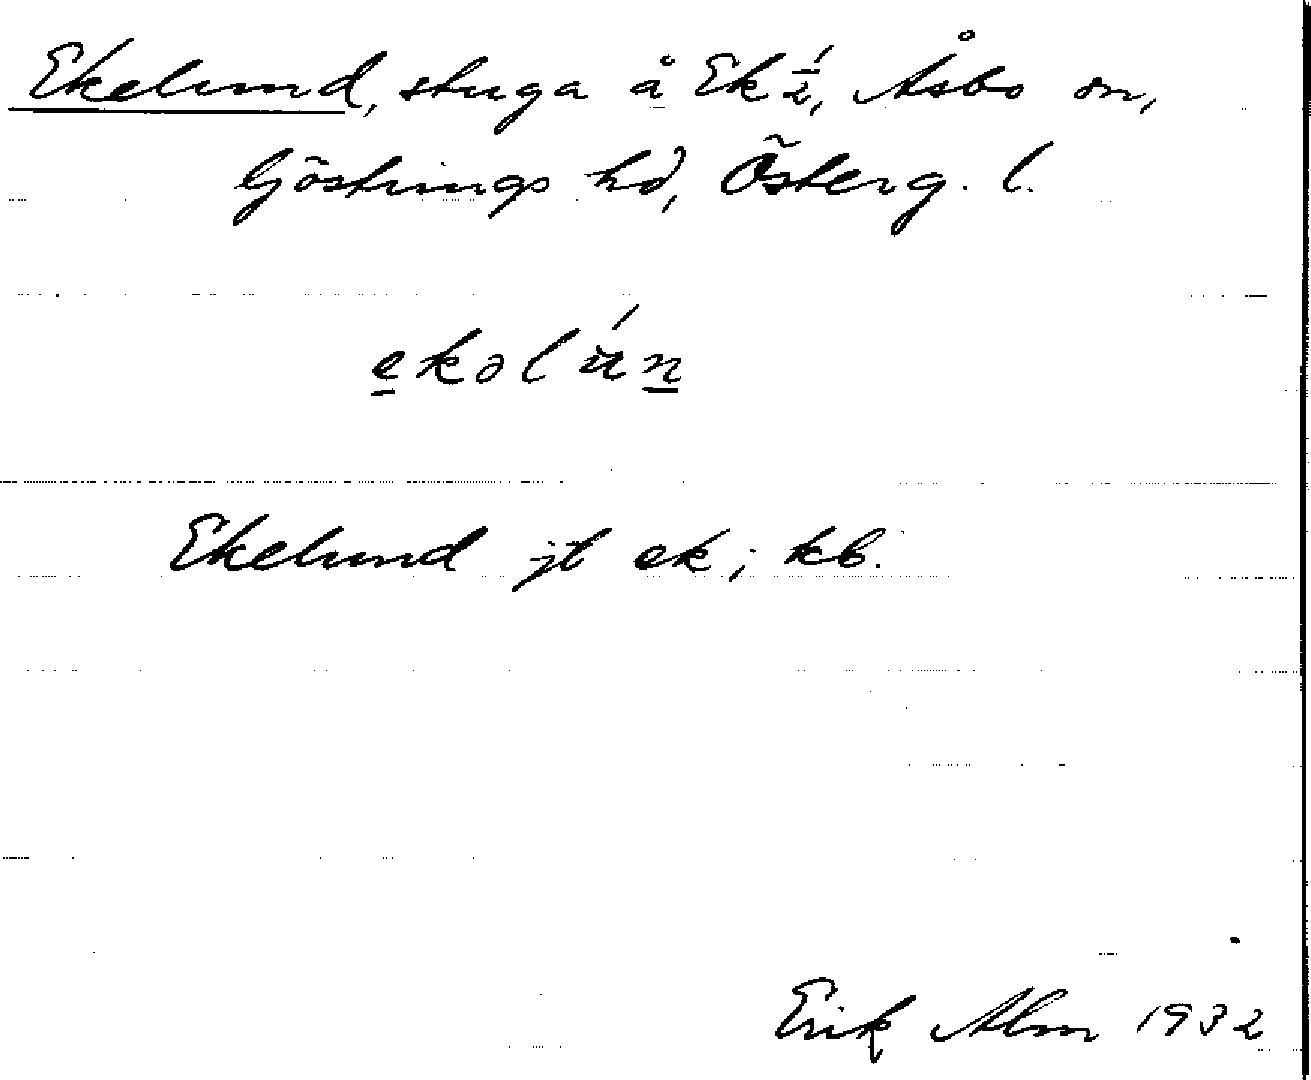 Ekelund, stuga å Ek 1/2, Åsbo sn,
Göstrings hd, Österg. l.
ekəlún
Ekelund jt ek; kb.
Erik Alm 1932